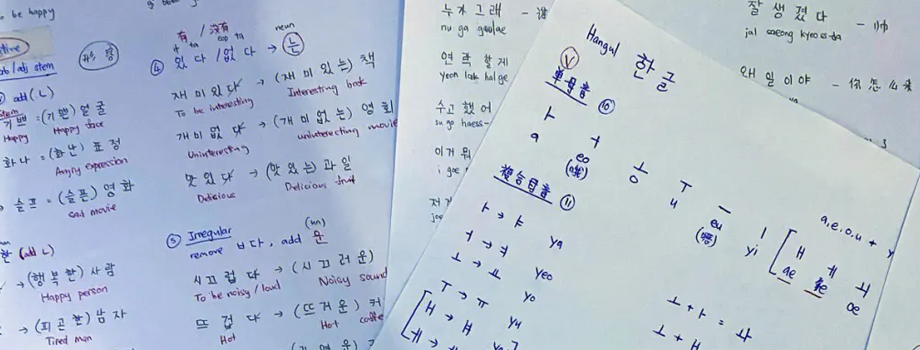 to be happy
verb/adj stem
add (ㄴ)
기쁘 = (기쁜) 얼굴
Happy Happy face
화나 = (화난) 표정
Angry expression
슬프 = (슬픈) 영화
sad movie
한 (add ㄴ)
→ (행복한) 사람
Happy person
→ (피곤한) 남자
Tired man
有 / 没有
④ 있다 / 없다 → 는
neun
재미있다 → (재미있는) 책
To be interesting Interesting book
개미없다 → (개미없는) 영화
Uninteresting uninteresting movie
맛있다 → (맛있는) 과일
Delicious Delicious fruit
⑤ Irregular (un)
remove ㅂ다, add 운
시끄럽다 → (시끄러운)
To be noisy / loud Noisy sound
뜨겁다 → (뜨거운) 커
Hot Hot coffe
누가 그래
nu ga geulae
연락할게
yeon lak hal ge
수고했어
su go haess-
이거 뭐
i geo
잘 생겼다 - 帅
jal saeng kyeoss-da
왜 일이야 - 你怎么
Hangul 한글
V
单母音 ⑩
ㅏ ㅓ ㅗ ㅜ ㅡ ㅣ
a eo o u eu yi
复合母音 ⑪
a, e, o, u + y
ㅐ ㅔ ㅚ
ae oe
ㅏ → ㅑ ya
ㅓ → ㅕ yeo
ㅗ → ㅛ yo
ㅜ → ㅠ yu
ㅐ → ㅒ
ㅔ →
ㅗ + ㅏ = ㅘ
ㅗ + ㅐ